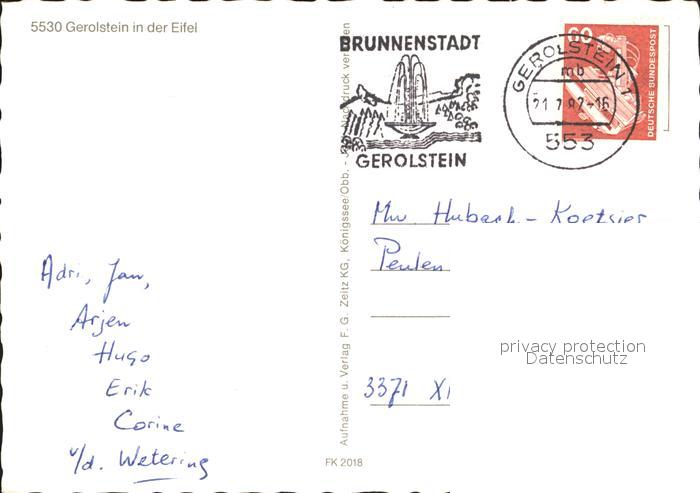 5530 Gerolstein in der Eifel
BRUNNENSTADT
GEROLSTEIN
GEROLSTEIN 1
mb
21.7.82-16
553
60
DEUTSCHE BUNDESPOST
Mw Hubach - Koetsier
Peulen
3371 XI
privacy protection
Datenschutz
Adri, Jan,
Arjen
Hugo
Erik
Corine
v/d. Wetering
Aufnahme u. Verlag F. G. Zeitz KG, Königssee/Obb. - Nachdruck verboten
FK 2018